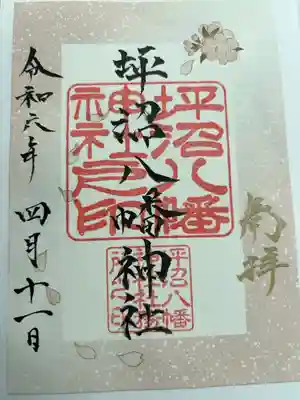 奉拝
坪沼八幡神社
坪沼八幡
神社之印
坪沼八幡
令和六年 四月十一日